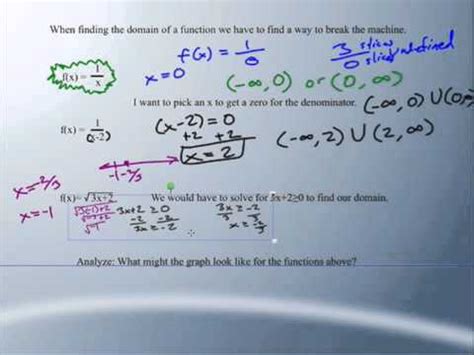 When finding the domain of a function we have to find a way to break the machine.
f(x) = 1/x
f(x) = 1/0
x=0
3 slices / 0 slices undefined
(-∞, 0) or (0, ∞)
I want to pick an x to get a zero for the denominator.
(-∞, 0) ∪ (0,∞
f(x) = 1/(x-2)
(x-2) = 0
+2 +2
x = 2
(-∞, 2) ∪ (2, ∞)
-1 -2/3
x=-2/3
x=-1
f(x)= √3x+2
We would have to solve for 3x+2≥0 to find our domain.
3x+2 ≥ 0
-2 -2
3x ≥ -2
3x ≥ -2
3 3
x ≥ -2/3
Analyze: What might the graph look like for the functions above?